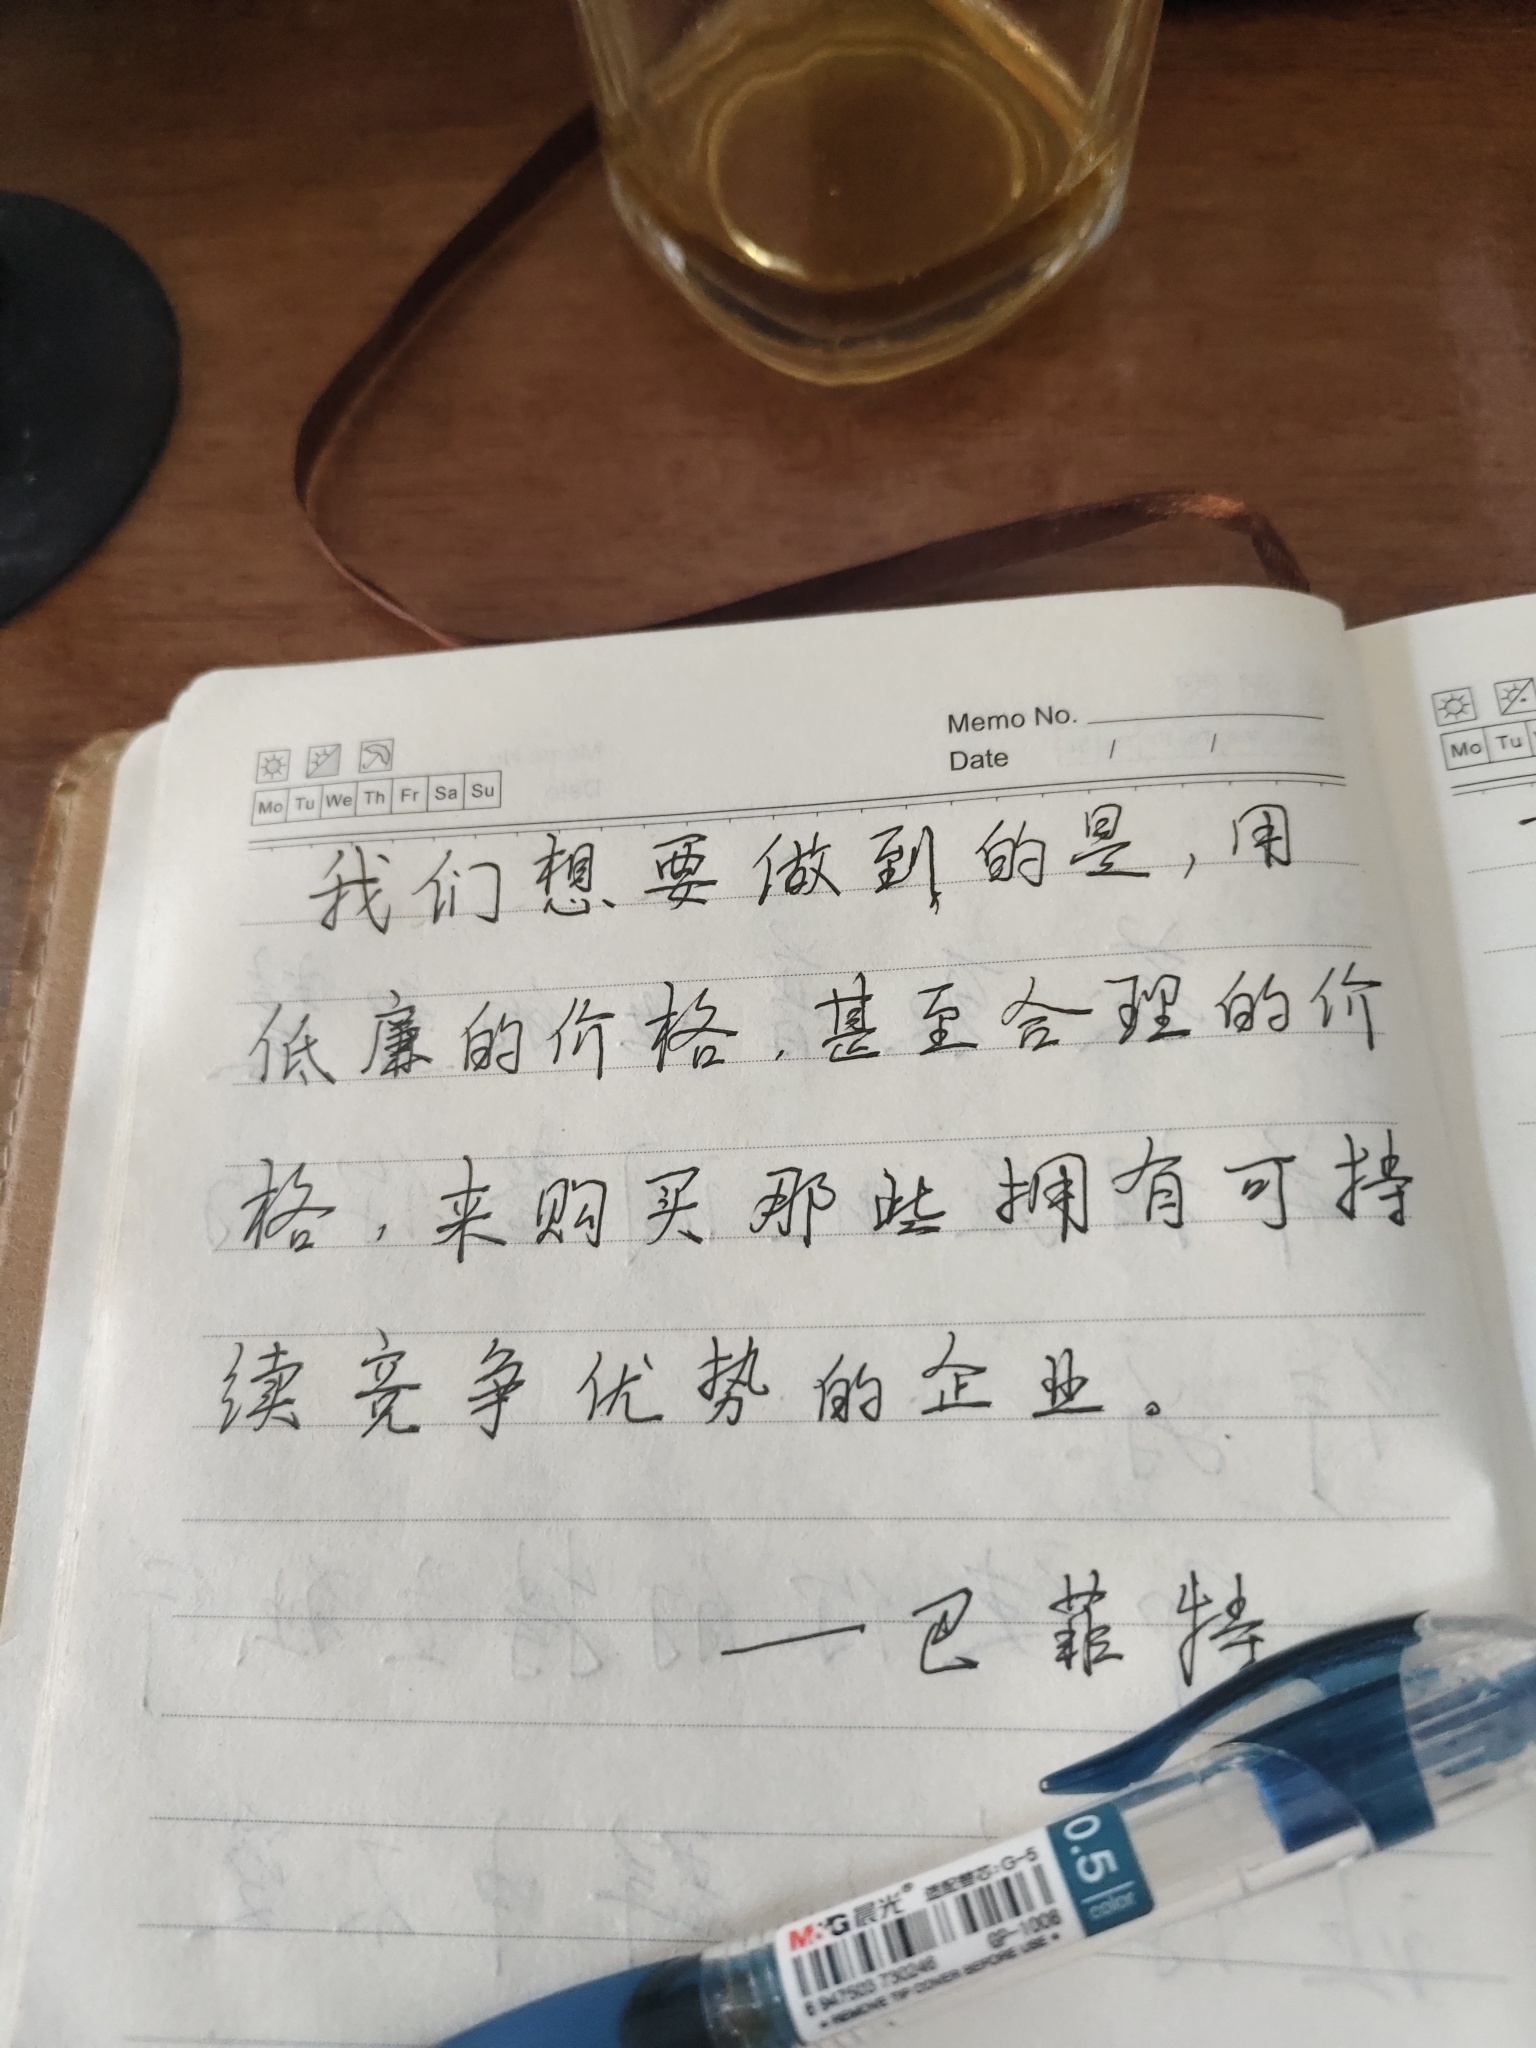 Memo No.
Date / /
Mo Tu We Th Fr Sa Su
Mo Tu
我们想要做到的是，用
低廉的价格，甚至合理的价
格，来购买那些拥有可持
续竞争优势的企业。
—巴菲特
0.5 color
M&G晨光® 适配替芯:G-5
GP-1008
6 947503 730246
• REMOVE TIP COVER BEFORE USE •